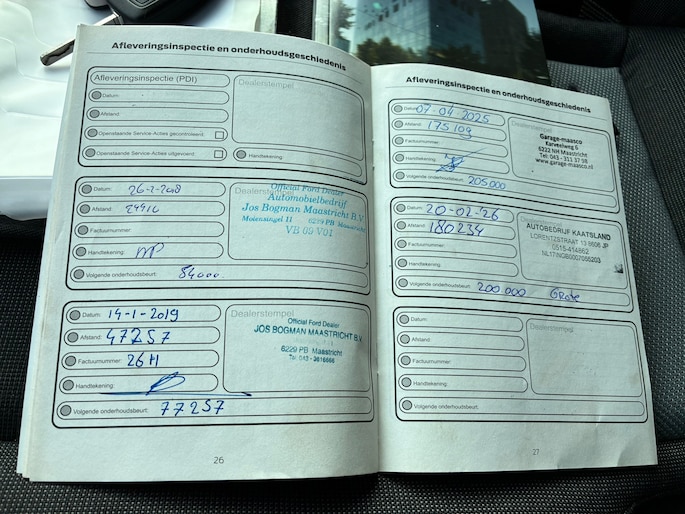 Afleveringsinspectie en onderhoudsgeschiedenis
Afleveringsinspectie (PDI)
Dealerstempel
Datum:
Afstand:
Openstaande Service-Acties gecontroleerd:
Openstaande Service-Acties uitgevoerd:
Handtekening:
Datum: 26-2-2018
Dealerstempel
Official Ford Dealer
Automobielbedrijf
Jos Bogman Maastricht B.V.
Molensingel 11 6229 PB Maastricht
VB 09 V01
Afstand:
Factuurnummer:
Handtekening:
Volgende onderhoudsbeurt: 54000
Datum: 14-1-2019
Dealerstempel
Official Ford Dealer
JOS BOGMAN MAASTRICHT B.V.
6229 PB Maastricht
Tel. 043 - 3616666
Afstand: 47257
Factuurnummer: 26H
Handtekening:
Volgende onderhoudsbeurt: 77257
26
Afleveringsinspectie en onderhoudsgeschiedenis
Datum: 07-04 2025
Dealerstempel
Garage-maasco
Karveelweg 6
6222 NH Maastricht
Tel: 043 - 311 37 58
www.garage-maasco.nl
Afstand: 175109
Factuurnummer:
Handtekening:
Volgende onderhoudsbeurt: 205000
Datum: 20-02-26
Dealerstempel
AUTOBEDRIJF KAATSLAND
LORENTZSTRAAT 13 8606 JP
0515-414862
Afstand: 180234
Factuurnummer:
Handtekening:
Volgende onderhoudsbeurt: 200.000 Grote
Datum:
Dealerstempel
Afstand:
Factuurnummer:
Handtekening:
Volgende onderhoudsbeurt:
27